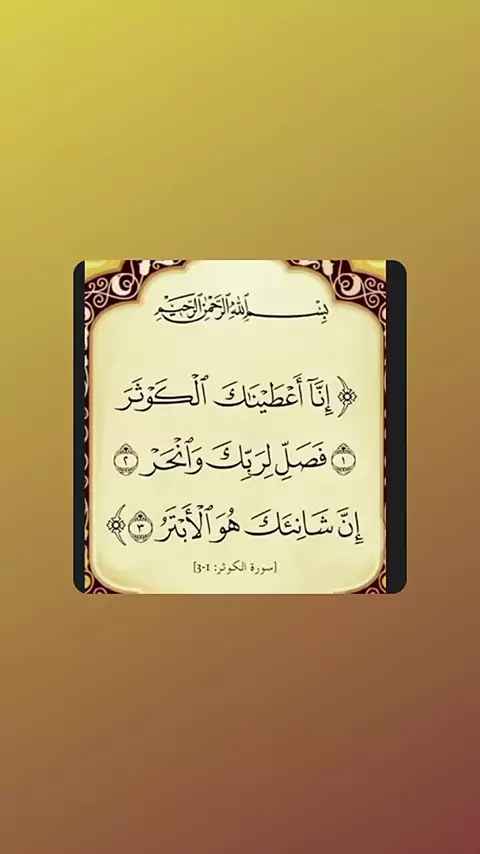 بِسْمِ ٱللَّهِ ٱلرَّحْمَٰنِ ٱلرَّحِيمِ
﴿ إِنَّآ أَعْطَيْنَٰكَ ٱلْكَوْثَرَ
١ فَصَلِّ لِرَبِّكَ وَٱنْحَرْ ٢
إِنَّ شَانِئَكَ هُوَ ٱلْأَبْتَرُ ٣ ﴾
[سورة الكوثر: 1-3]